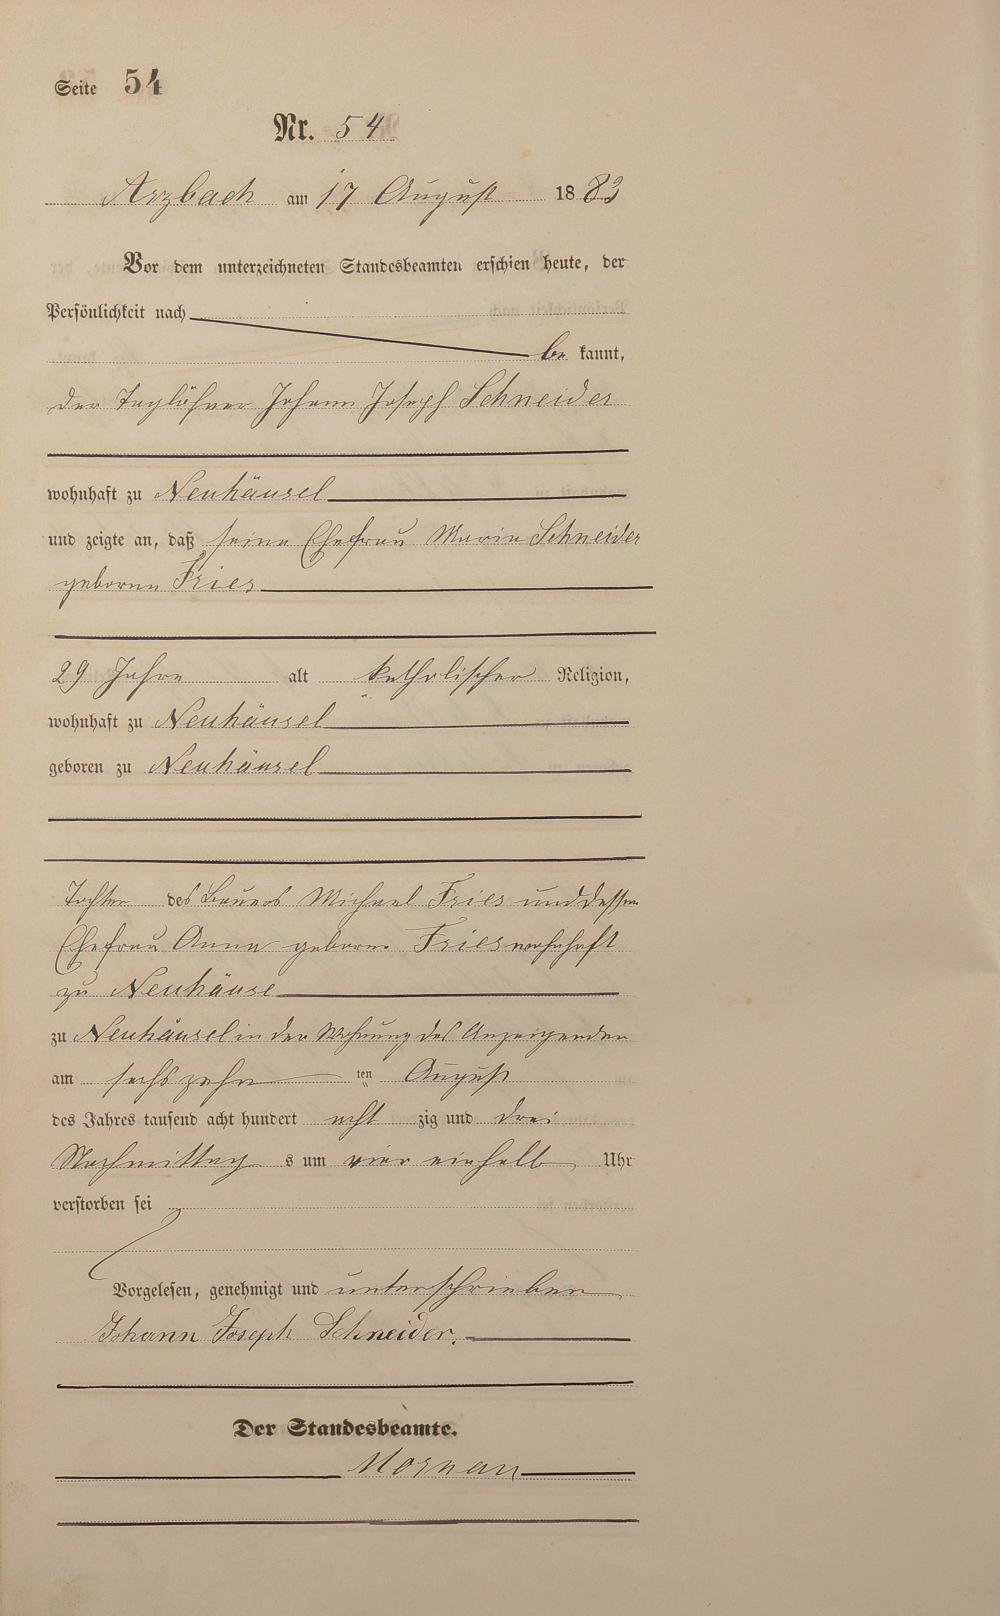 Seite 54
Nr. 54
Arzbach am 17 August 1883
Vor dem unterzeichneten Standesbeamten erschien heute, der
Persönlichkeit nach
be kannt,
der Taglöhner Johann Joseph Schneider
wohnhaft zu Neuhäusel
und zeigte an, daß seine Ehefrau Maria Schneider
geborene Fries
29 Jahre alt katholischer Religion,
wohnhaft zu Neuhäusel
geboren zu Neuhäusel
Tochter des Bauers Michael Fries und dessen
Ehefrau Anna geborene Fries wohnhaft
zu Neuhäuse
zu Neuhäusel in der Wohnung des Anzeigenden
am sechszehn ten August
des Jahres tausend acht hundert acht zig und drei
Nachmittag s um vier einhalb Uhr
verstorben sei
Vorgelesen, genehmigt und unterschrieben
Johann Joseph Schneider.
Der Standesbeamte.